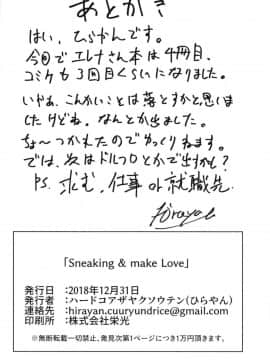 あとがき
はい、ひらやんです。
今回でエレナさん本は4冊目、
コミケも3回目くらいになりました。
いやぁ、こんかいことは落とすかと思いま
したけどね、なんとか出ました。
ちょ〜つかれたのでゆっくりねます。
では、次はドルフロとかで出すかも?
P.S. 求む、仕事 or 就職先
Hirayan
「Sneaking & make Love」
発行日:2018年12月31日
発行者:ハードコアザヤクソウテン(ひらやん)
連絡先:hirayan.cuuryundrice@gmail.com
印刷所:株式会社栄光
※無断転載一切禁止、発見次第1ページにつき1万円頂きます。